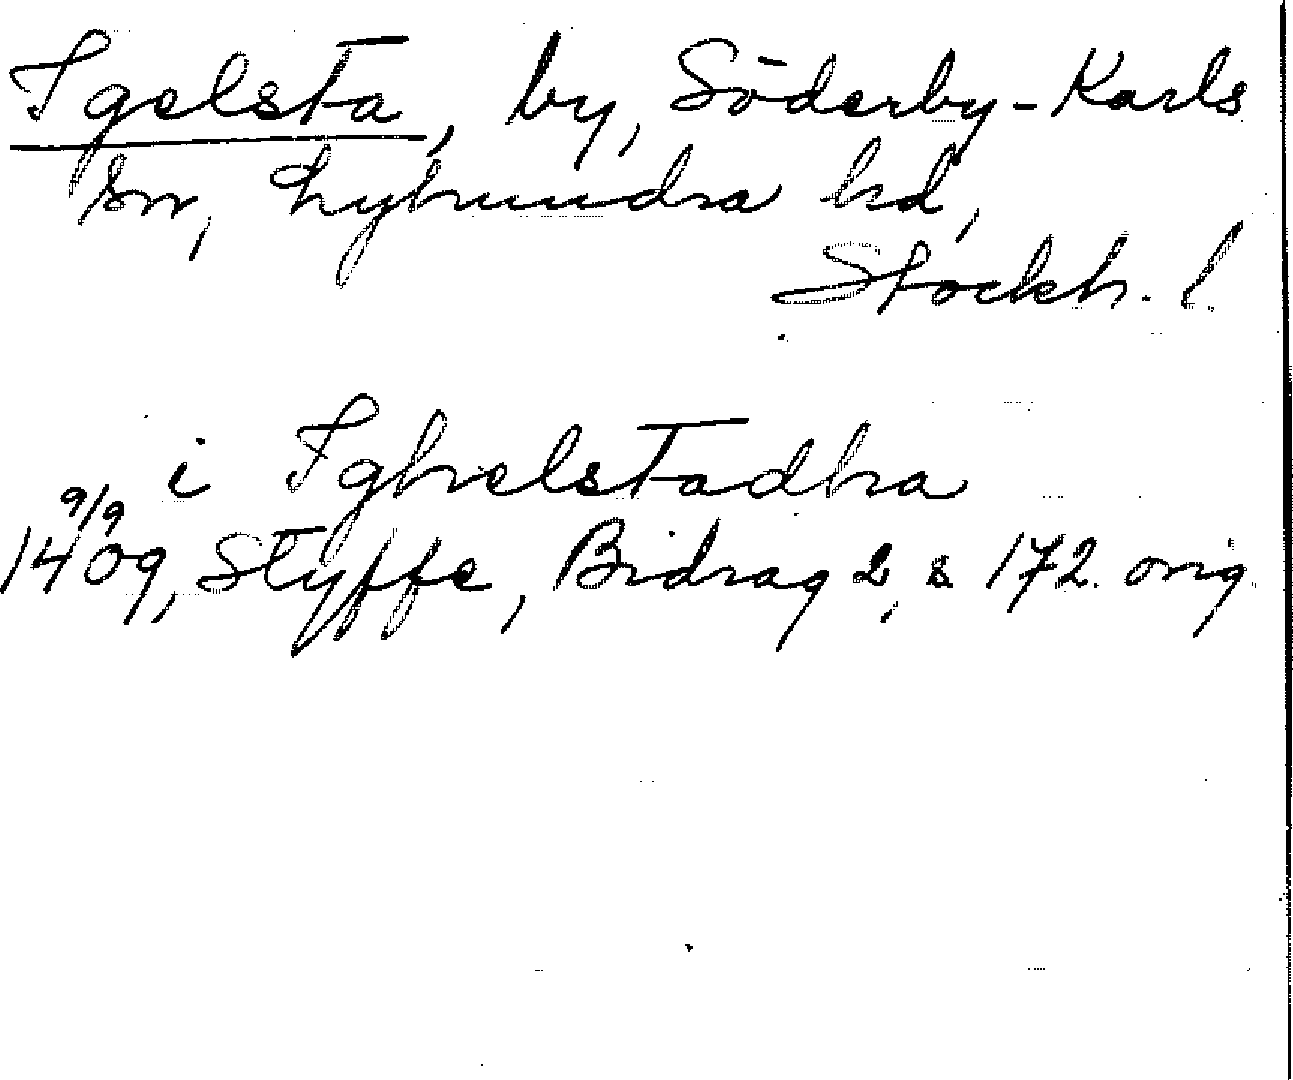 Igelsta, by, Söderby-Karls
sn, Lyhundra hd,
Stockh. l.
i Ighelstadha
9/9
1409, Styffe, Bidrag 2, s 172. orig.